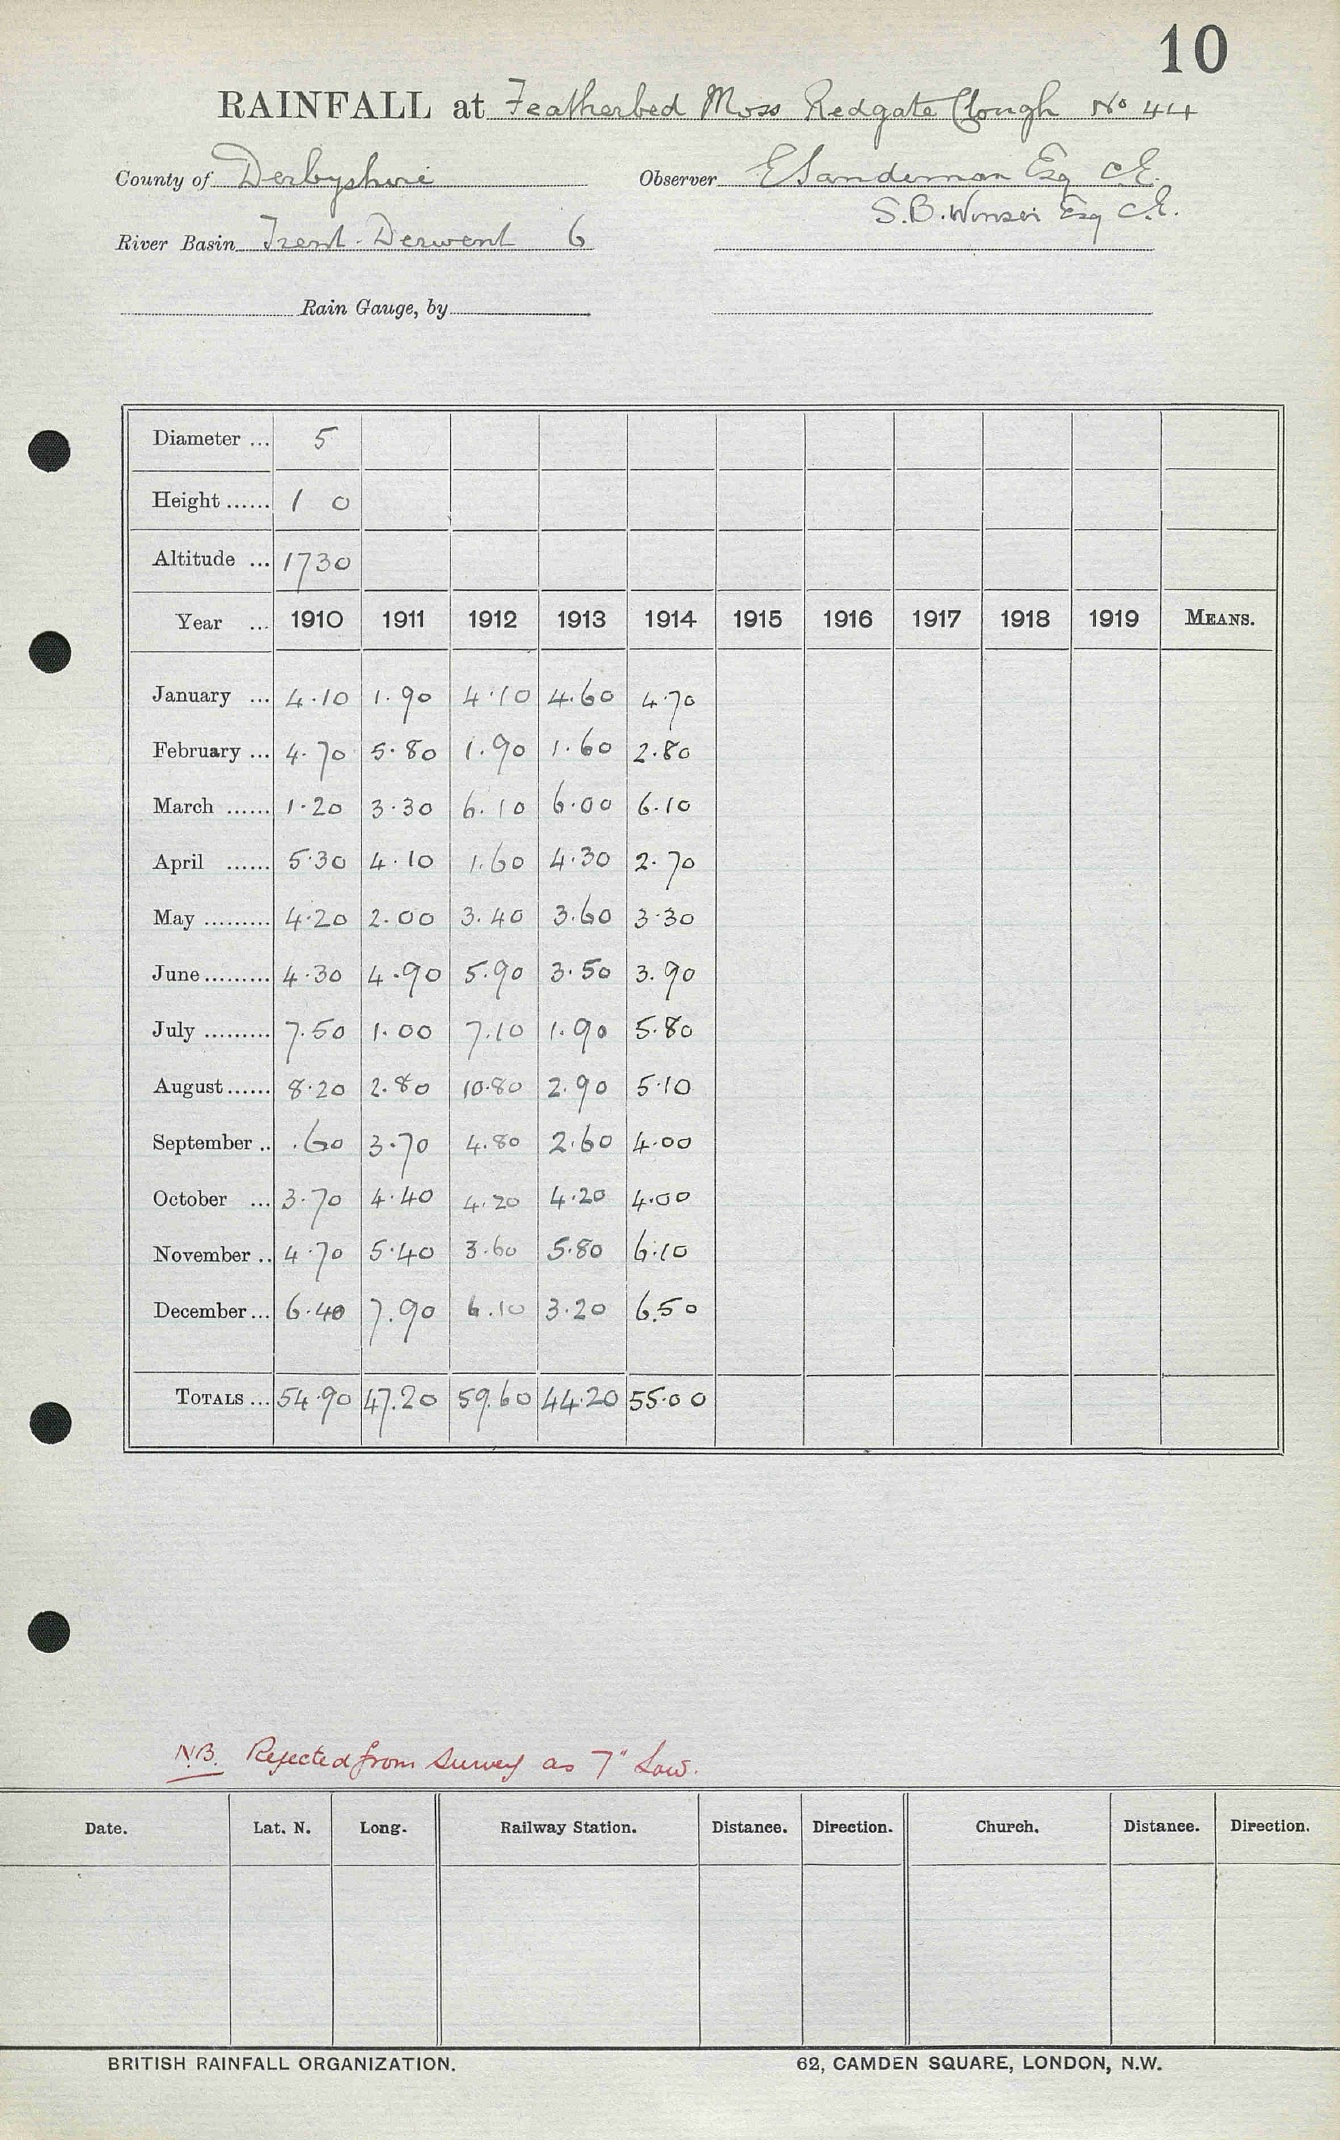 10
RAINFALL at Featherbed Moss Redgate Clough No 44
County of Derbyshire Observer E Sandeman Esq C.E.
S.B. Winser Esq C.E.
River Basin Trent-Derwent 6
Rain Gauge, by
Diameter ... 5
Height ...... 1 0
Altitude ... 1730
Year ... 1910 1911 1912 1913 1914 1915 1916 1917 1918 1919 MEANS.
January ... 4.10 1.90 4.10 4.60 4.70
February ... 4.70 5.80 1.90 1.60 2.80
March ...... 1.20 3.30 6.10 6.00 6.10
April ...... 5.30 4.10 1.60 4.30 2.70
May ......... 4.20 2.00 3.40 3.60 3.30
June ......... 4.30 4.90 5.90 3.50 3.90
July ......... 7.50 1.00 7.10 1.90 5.80
August ...... 8.20 2.80 10.80 2.90 5.10
September .. .60 3.70 4.80 2.60 4.00
October ... 3.70 4.40 4.20 4.20 4.00
November .. 4.70 5.40 3.60 5.80 6.10
December ... 6.40 7.90 6.10 3.20 6.50
TOTALS ... 54.90 47.20 59.60 44.20 55.00
N.B. Rejected from Survey as 7" low.
Date. Lat. N. Long. Railway Station. Distance. Direction. Church. Distance. Direction.
BRITISH RAINFALL ORGANIZATION. 62, CAMDEN SQUARE, LONDON, N.W.